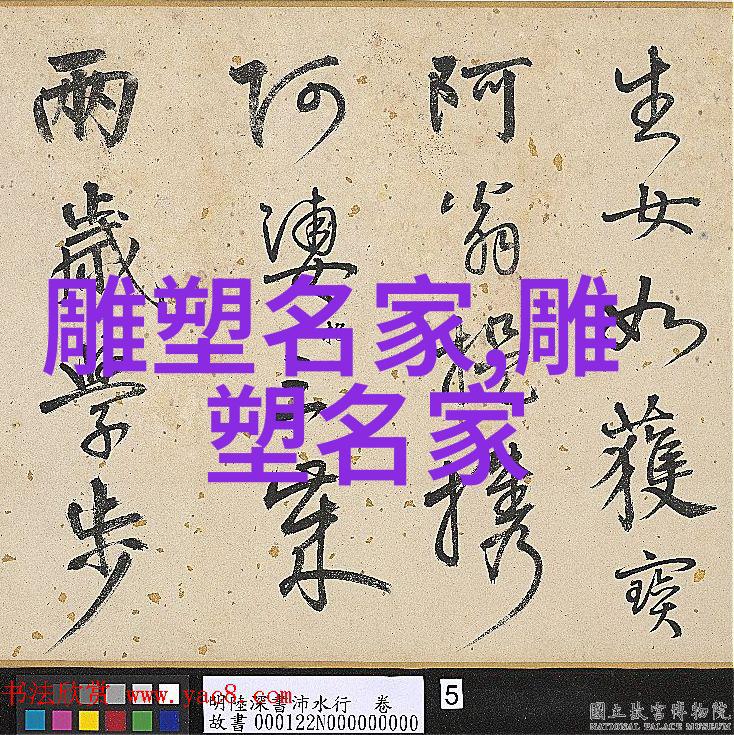 生女如獲寶
阿翁携
阿婆
兩歲學步
雕塑名家,雕
塑名家
书法欣赏 www.yac8.com
明陸深書沛水行 卷
故書 000122N000000000
5
國立故宮博物院
NATIONAL PALACE MUSEUM